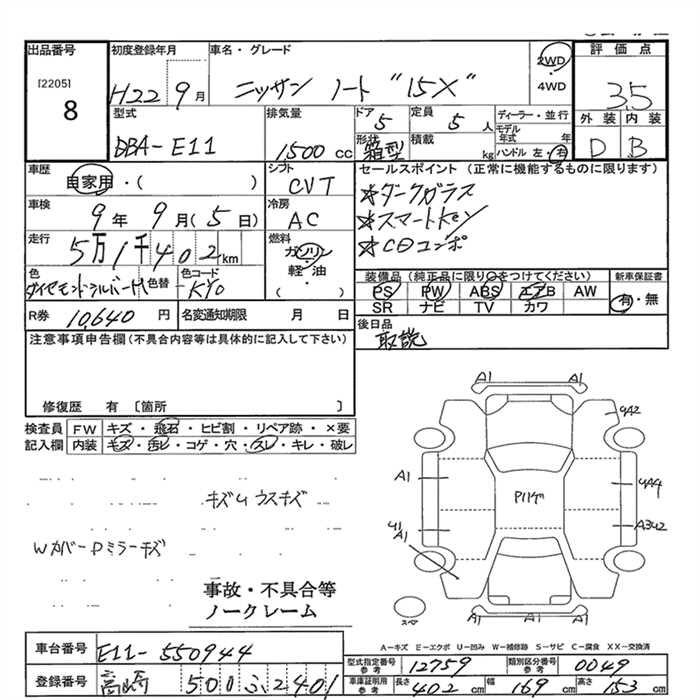 出品番号 初度登録年月 車名・グレード 評価点
[2205]
8
H22 9月 ニッサン ノート "15X"
2WD
・
4WD
3.5
型式 排気量 ドア 定員 ディーラー・並行
外装 内装
DBA-E11 1500cc 5 5人
モデル年式 年
形状 箱型 積載 kg ハンドル 左・右
D B
車歴 シフト セールスポイント(正常に機能するものに限ります)
自家用・( ) CVT
☆ダークガラス
車検 冷房
9年 9月(5日) AC
☆スマートKey
走行 燃料
5万1千402km ガソリン・軽・油( )
☆CDコンポ
色 色替 色コード
ダイヤモンドシルバーM KY0
装備品(純正品に限り○をつけてください) 新車保証書
PS PW ABS エアB AW 有・無
SR ナビ TV カワ
R券 10,640円 名変通知期限 月 日
後日品
取説
注意事項申告欄(不具合内容等は具体的に記入して下さい)
修復歴 有〔箇所 〕
検査員 FW キズ・飛石・ヒビ割・リペア跡・×要
記入欄 内装 キズ・汚レ・コゲ・穴・スレ・キレ・破レ
キズ4 ウスキズ
WカバーPミラーキズ
事故・不具合等
ノークレーム
A1 A1
A1
A1
A1 A1
スペア
A-キズ E-エクボ U-凹み W-補修跡 S-サビ C-腐食 XX-交換済
車台番号 E11-550944
型式指定番号 参考 12759 類別区分番号 参考 0049
登録番号 高崎 500ふ2401
車庫証明用 参考 長さ 402cm 幅 169cm 高さ 153cm